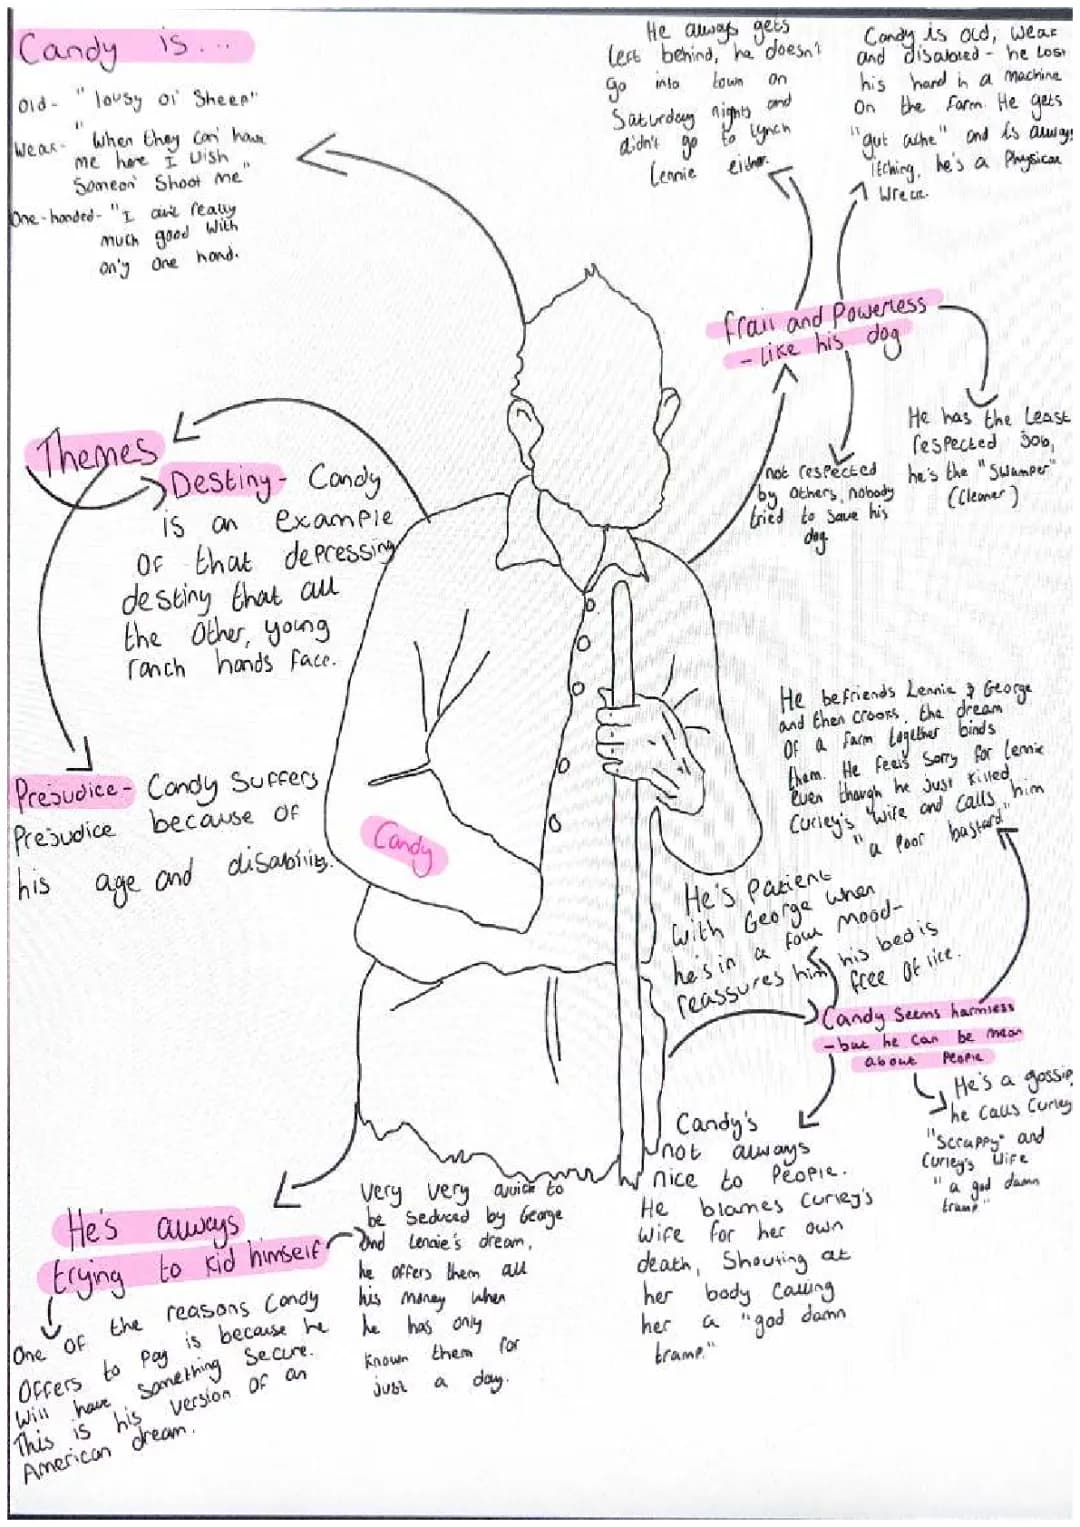 Candy is...
old- "lousy ol' sheep"
Weak- "When they can' have
me here I wish
Someon' Shoot me"
One-handed- "I ain't really
much good with
on'y one hand.
He always gets
left behind, he doesn't
go into town on
Saturday nights and
didn't go to lynch
Lennie either.
Candy is old, weak
and disabled - he lost
his hand in a machine
on the farm. He gets
"gut ache" and is always
itching, he's a Physical
wreck.
frail and Powerless
- like his dog
He has the least
respected job,
he's the "Swamper"
(Cleaner)
not respected
by others, nobody
tried to save his
dog
Themes
Destiny- Candy
is an example
of that depressing
destiny that all
the other, young
ranch hands face.
Prejudice- Candy Suffers
Prejudice because of
his age and disability.
Candy
He befriends Lennie & George
and then crooks, the dream
of a farm together binds
them. He feels sorry for Lennie
even though he just killed
Curley's wife and calls him
"a poor bastard"
He's Patient
with George when
he's in a foul mood-
reassures him his bed is
free of lice.
Candy Seems harmless
- but he can be mean
about People
He's a gossip
he calls Curley
"Scrappy" and
Curley's Wife
"a god damn
tramp"
Candy's
not always
nice to People.
He blames Curley's
wife for her own
death, Shouting at
her body calling
her a "god damn
tramp."
He's always
trying to kid himself
Very very quick to
be seduced by George
and Lennie's dream,
he offers them all
his money when
he has only
known them for
just a day.
One of the reasons Candy
offers to pay is because he
will have something secure.
This is his version of an
American dream.